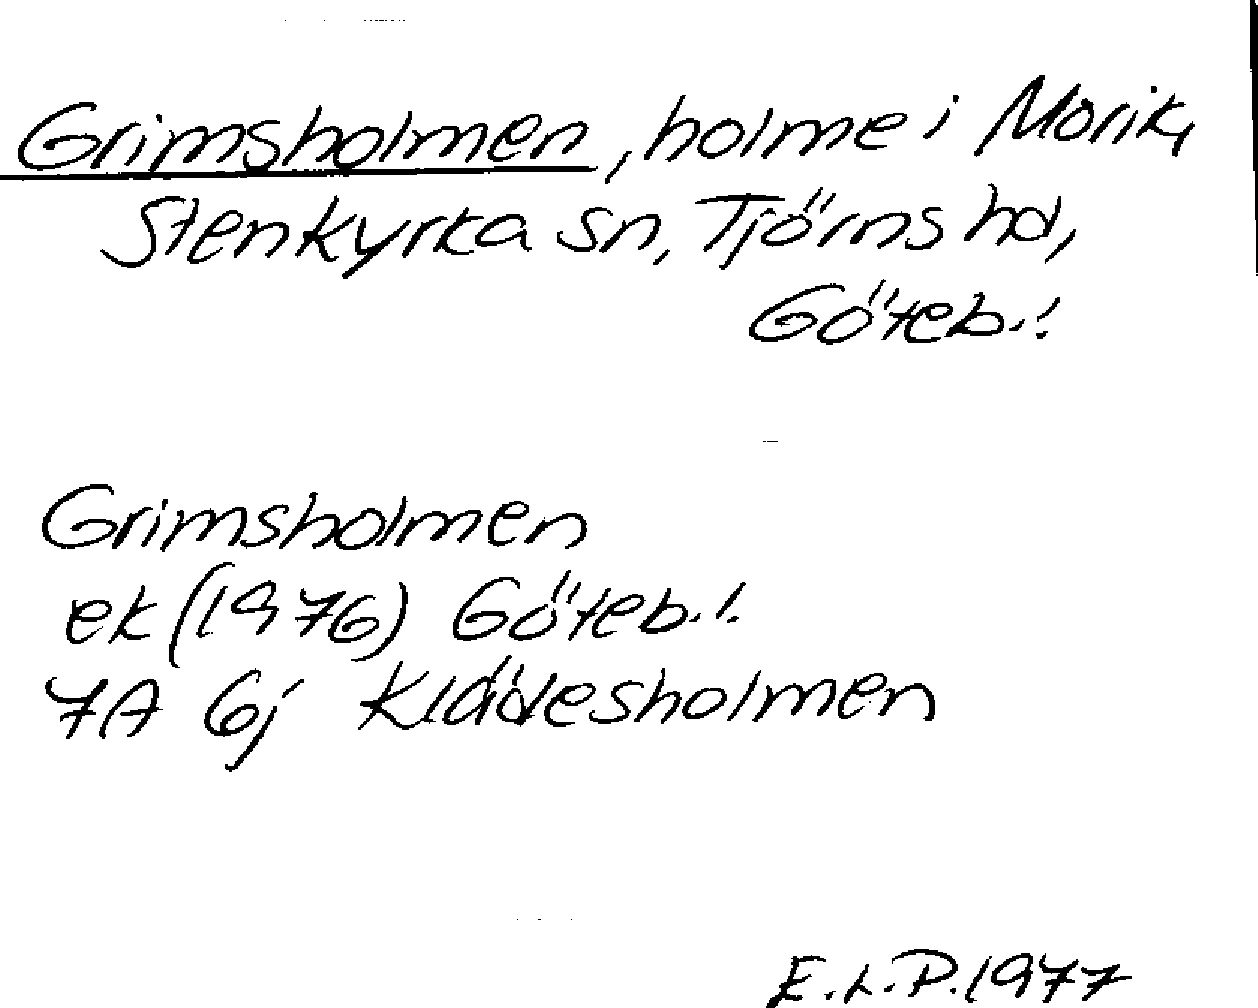 Grimsholmen, holme i Morik,
Stenkyrka sn, Tjörns hd,
Göteb.!
Grimsholmen
ek (1976) Göteb.!
7A 6j Klädesholmen
E.L.P. 1977